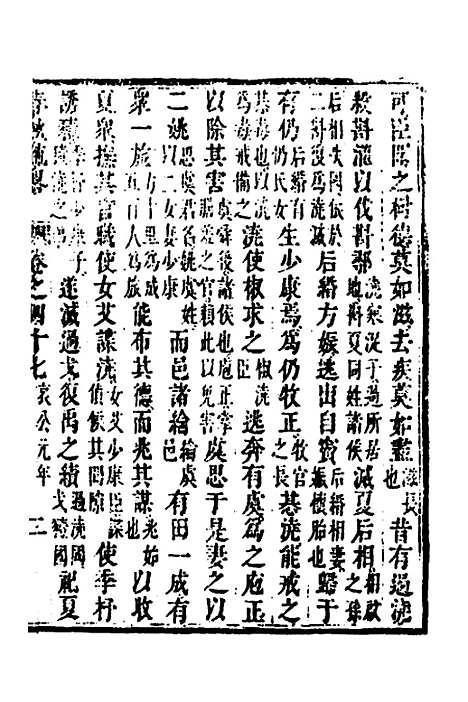 可臣聞之樹德莫如滋去疾莫如盡滋長也昔有過澆
殺斟灌以伐斟鄩澆寒浞子過所居地斟夏同姓諸侯滅夏后相相啟之孫
后相失國依於二斟復為澆滅后緡方娠逃出自竇后緡相妻娠懷胎也歸于
有仍后緡有仍氏女生少康焉為仍牧正牧官之長惎澆能戒之
惎毒也以澆為毒戒備之澆使椒求之椒澆臣逃奔有虞為之庖正
以除其害虞舜後諸侯也庖正掌膳羞之官賴此以免害虞思于是妻之以
二姚思虞君名姚虞姓以二女妻少康而邑諸綸綸虞邑有田一成有
眾一旅方十里為成五百人為旅能布其德而兆其謀兆始也以收
夏眾撫其官職使女艾諜澆女艾少康臣諜偵候其間隙使季杼
誘豷季杼少康子豷澆之弟遂滅過戈復禹之績過澆國戈豷國祀夏
春秋 卷之四十七 哀公元年 三